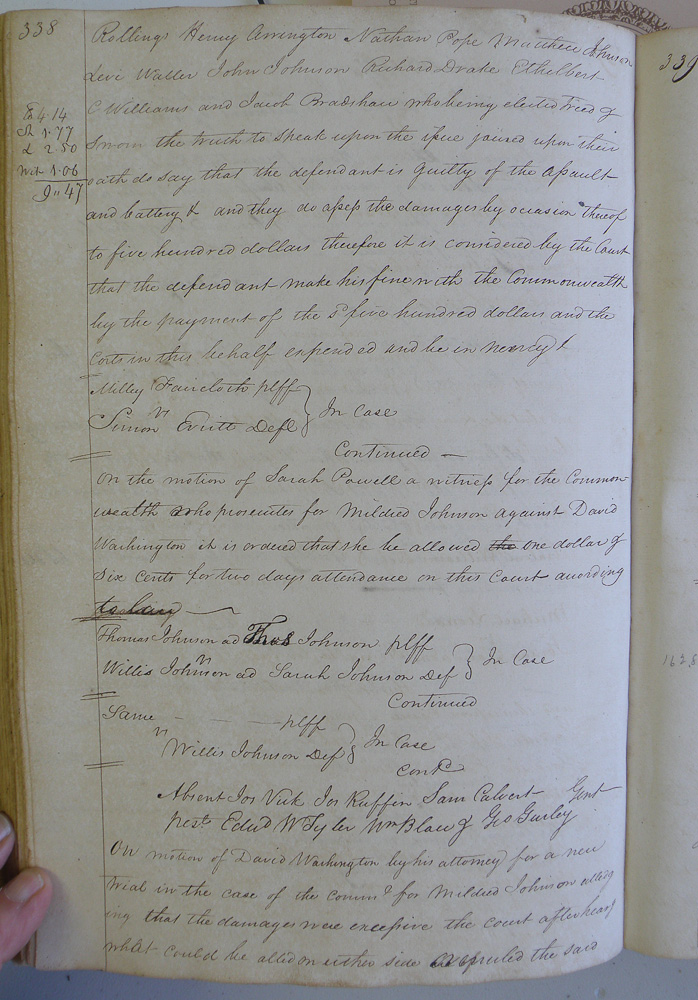 338
Rollings Henry Arrington Nathan Pope Matthew Johnson
Levi Waller John Johnson Richard Drake Ethelbert
C Williams and Jacob Bradshaw who being elected tried &
Sworn the truth to Speak upon the issue joined upon their
oath do say that the defendant is guilty of the assault
and battery & and they do assess the damages by occasion thereof
to five hundred dollars therefore it is considered by the Court
that the defendant make his fine with the Commonwealth
by the payment of the sd five hundred dollars and the
Costs in this behalf expended and be in mercy &
4.14
1.77
2.50
Wit 1.06
9"47
Milley Faircloth plff
vs
Simon Evitt Deft
In Case
Continued —
On the motion of Sarah Powell a witness for the Common-
wealth who prosecutes for Mildred Johnson against David
Washington it is ordered that she be allowed the one dollar &
Six cents for two days attendance on this Court according
to law
Thomas Johnson ad Thos Johnson plff
vs
Willis Johnson ad Sarah Johnson Def
In Case
Continued
Same — — plff
vs
Willis Johnson Def
In Case
Contd
Absent Jos Vick Jos Ruffin Sam Calvert Gent
prest Edwd W Tyler Wm Blow & Geo Gurley
On motion of David Washington by his attorney for a new
trial in the case of the Commth for Mildred Johnson alledg
ing that the damages were excessive the court after hearg
what could be alled on either side overruled the said
339
1628